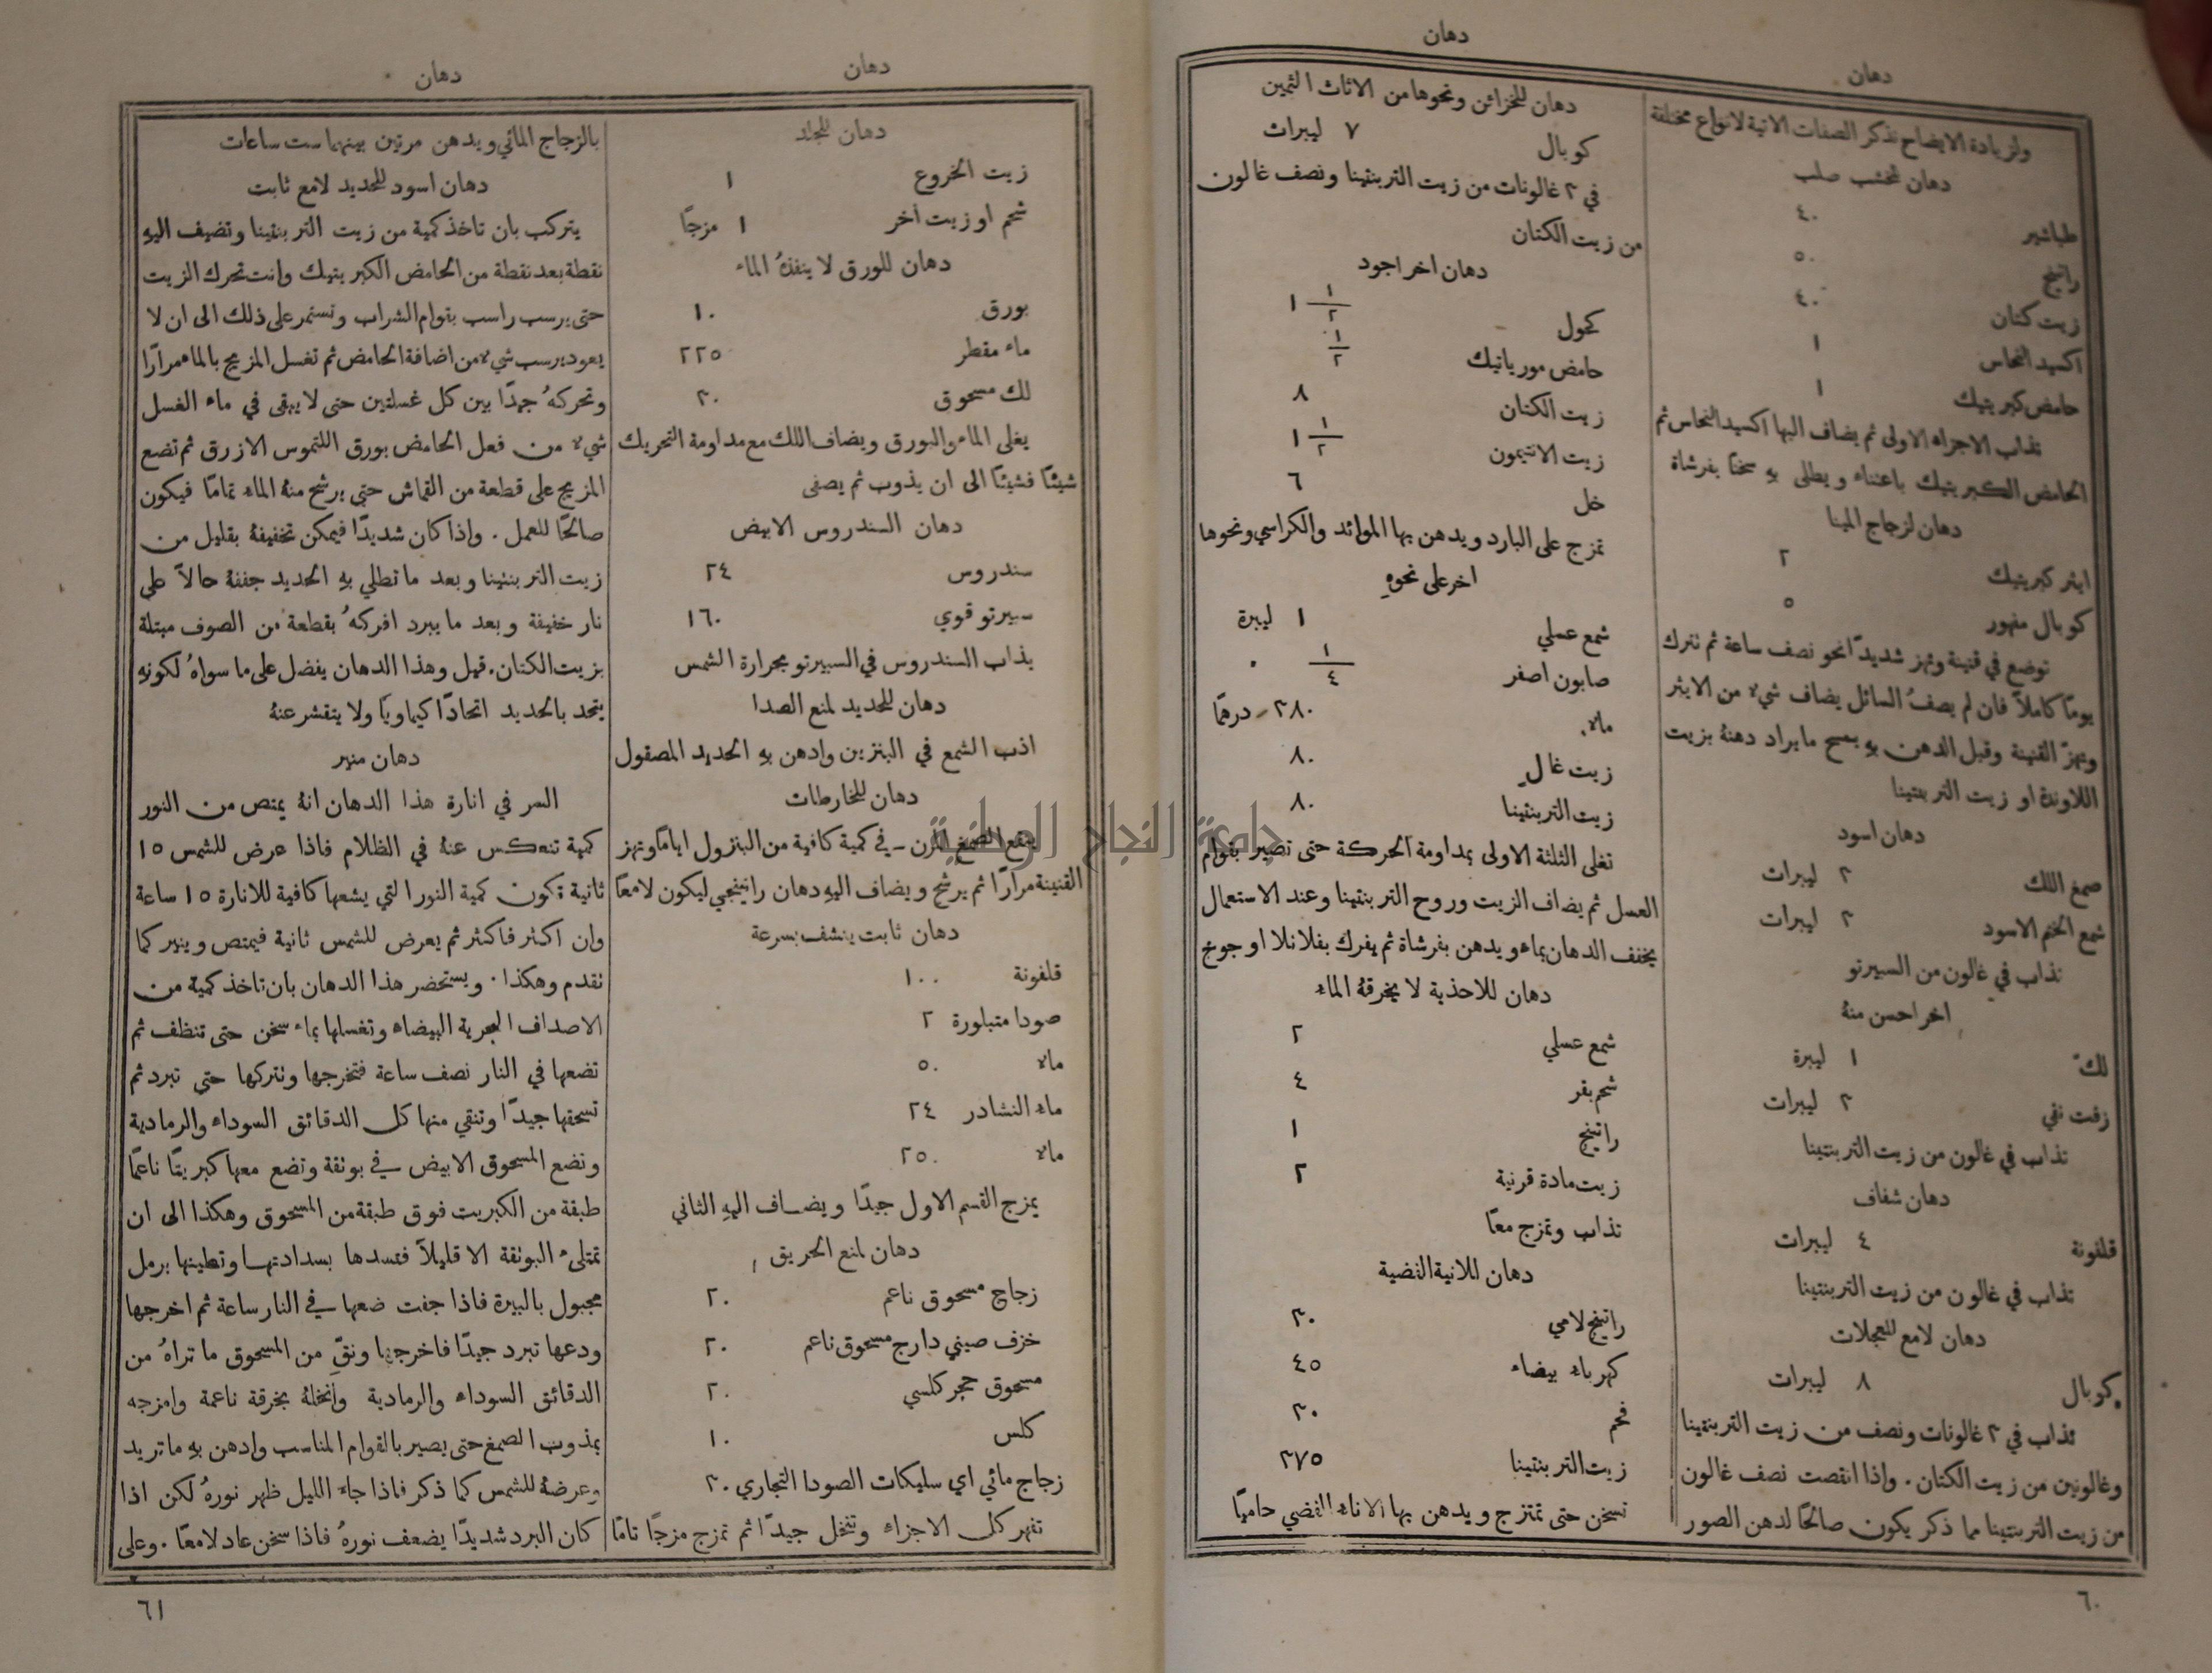 دهان
دهان
ولزيادة الايضاح نذكر الصفات الاتية لانواع مختلفة
دهان لخشب صلب
طباشير ٤٠
راتينج ٥٠
زيت كتان ٤٠
اكسيد النحاس ١
حامض كبريتيك ١
تذاب الاجزاء الاولى ثم يضاف اليها اكسيد النحاس ثم
الحامض الكبريتيك باعتناء ويطلى به سخنًا بفرشاة
دهان لزجاج المينا
ايثر كبريتيك ٢
كوبال مفهور ٥
توضع في قنينة وتهز شديدًا نحو نصف ساعة ثم تترك
يومًا كاملًا فان لم يصفُ السائل يضاف شيء من الايثر
وتهزّ القنينة وقبل الدهن بهِ يمسح ما يراد دهنهُ بزيت
اللاوندة او زيت التربنتينا
دهان اسود
صمغ اللك ٣ ليبرات
شمع الختم الاسود ٣ ليبرات
تذاب في غالون من السبيرتو
اخر احسن منهُ
لكّ ١ ليبرة
زفت نقي ٣ ليبرات
تذاب في غالون من زيت التربنتينا
دهان شفاف
قلفونة ٤ ليبرات
تذاب في غالون من زيت التربنتينا
دهان لامع للعجلات
كوبال ٨ ليبرات
تذاب في ٣ غالونات ونصف من زيت التربنتينا
وغالونين من زيت الكتان . واذا انقصت نصف غالون
من زيت التربنتينا مما ذكر يكون صالحًا لدهن الصور
دهان للخزائن ونحوها من الاثاث الثمين
كوبال ٧ ليبرات
في ٣ غالونات من زيت التربنتينا ونصف غالون
من زيت الكتان
دهان اخر اجود
كحول ١ ١/٢
حامض مورياتيك ١/٢
زيت الكتان ٨
زيت الانتيمون ١ ١/٢
خل ٦
تمزج على البارد ويدهن بها الموائد والكراسي ونحوها
اخر على نحوهِ
شمع عسلي ١ ليبرة
صابون اصفر ١/٤ ٠
ماء ٣٨٠ درهمًا
زيت غال ٨٠
زيت التربنتينا ٨٠
تغلى الثلثة الاولى بمداومة الحركة حتى تصير بقوام
العسل ثم يضاف الزيت وروح التربنتينا وعند الاستعمال
يخفف الدهان بماء ويدهن بفرشاة ثم يفرك بفلانلا او جوخ
دهان للاحذية لا يخرقهُ الماء
شمع عسلي ٢
شحم بقر ٤
راتينج ١
زيت مادة قرنية ٢
تذاب وتمزج معًا
دهان للانية الفضية
راتينج لامي ٣٠
كهرباء بيضاء ٤٥
فحم ٣٠
زيت التربنتينا ٣٧٥
تسخن حتى تمتزج ويدهن بها الاناء الفضي حاميًا
٦٠
دهان
دهان
دهان للجلد
زيت الخروع ١
شحم او زيت اخر ١ مزجًا
دهان للورق لا ينفذهُ الماء
بورق ١٠
ماء مقطر ٢٢٥
لك مسحوق ٣٠
يغلى الماء والبورق ويضاف اللك مع مداومة التحريك
شيئًا فشيئًا الى ان يذوب ثم يصفى
دهان السندروس الابيض
سندروس ٢٤
سبيرتو قوي ١٦٠
يذاب السندروس في السبيرتو بحرارة الشمس
دهان للحديد لمنع الصدا
اذب الشمع في البنزين وادهن بهِ الحديد المصقول
دهان للخارطات
ينقع الصمغ المرن في كمية كافية من البنزول ايامًا وتهز
القنينة مرارًا ثم يرشح ويضاف اليهِ دهان راتينجي ليكون لامعًا
دهان ثابت ينشف بسرعة
قلفونة ١٠٠
صودا متبلورة ٢
ماء ٥٠
ماء النشادر ٢٤
ماء ٢٥٠
يمزج القسم الاول جيدًا ويضاف اليهِ الثاني
دهان لمنع الحريق
زجاج مسحوق ناعم ٢٠
خزف صيني دارج مسحوق ناعم ٢٠
مسحوق حجر كلسي ٢٠
كلس ١٠
زجاج مائي اي سليكات الصودا التجاري ٣٠
تفهر كل الاجزاء وتنخل جيدًا ثم تمزج مزجًا تامًا
بالزجاج المائي ويدهن مرتين بينهما ست ساعات
دهان اسود للحديد لامع ثابت
يتركب بان تاخذ كمية من زيت التربنتينا وتضيف اليهِ
نقطة بعد نقطة من الحامض الكبريتيك وانت تحرك الزيت
حتى يرسب راسب بقوام الشراب وتستمر على ذلك الى ان لا
يعود يرسب شيء من اضافة الحامض ثم تغسل المزيج بالماء مرارًا
وتحركهُ جيدًا بين كل غسلتين حتى لا يبقى في ماء الغسل
شيء من فعل الحامض بورق اللتموس الازرق ثم تضع
المزيج على قطعة من القماش حتى يرشح منهُ الماء تمامًا فيكون
صالحًا للعمل . واذا كان شديدًا فيمكن تخفيفهُ بقليل من
زيت التربنتينا وبعد ما تطلي بهِ الحديد جففهُ حالًا على
نار خفيفة وبعد ما يبرد افركهُ بقطعة من الصوف مبتلة
بزيت الكتان . قيل وهذا الدهان يفضل على ما سواهُ لكونهِ
يتحد بالحديد اتحادًا كيماويًا ولا يتقشر عنهُ
دهان منير
السر في انارة هذا الدهان انهُ يمتص من النور
كمية تنعكس عنهُ في الظلام فاذا عرض للشمس ١٥
ثانية تكون كمية النور التي يشعها كافية للانارة ١٥ ساعة
وان اكثر فاكثر ثم يعرض للشمس ثانية فيمتص وينير كما
تقدم وهكذا . ويستحضر هذا الدهان بان تاخذ كمية من
الاصداف البحرية البيضاء وتغسلها بماء سخن حتى تنظف ثم
تضعها في النار نصف ساعة فتخرجها وتتركها حتى تبرد ثم
تسحقها جيدًا وتنقي منها كل الدقائق السوداء والرمادية
وتضع المسحوق الابيض في بوتقة وتضع معها كبريتًا ناعمًا
طبقة من الكبريت فوق طبقة من المسحوق وهكذا الى ان
تمتلىء البوتقة الا قليلًا فتسدها بسدادتها وتطينها برمل
مجبول بالبيرة فاذا جفت ضعها في النار ساعة ثم اخرجها
ودعها تبرد جيدًا فاخرجها ونقّ من المسحوق ما تراهُ من
الدقائق السوداء والرمادية وانخلهُ بخرقة ناعمة وامزجه
بمذوب الصمغ حتى يصير بالقوام المناسب وادهن بهِ ما تريد
وعرضهُ للشمس كما ذكر فاذا جاء الليل ظهر نورهُ لكن اذا
كان البرد شديدًا يضعف نورهُ فاذا سخن عاد لامعًا . وعلى
٦١
جامعة النجاح الوطنية